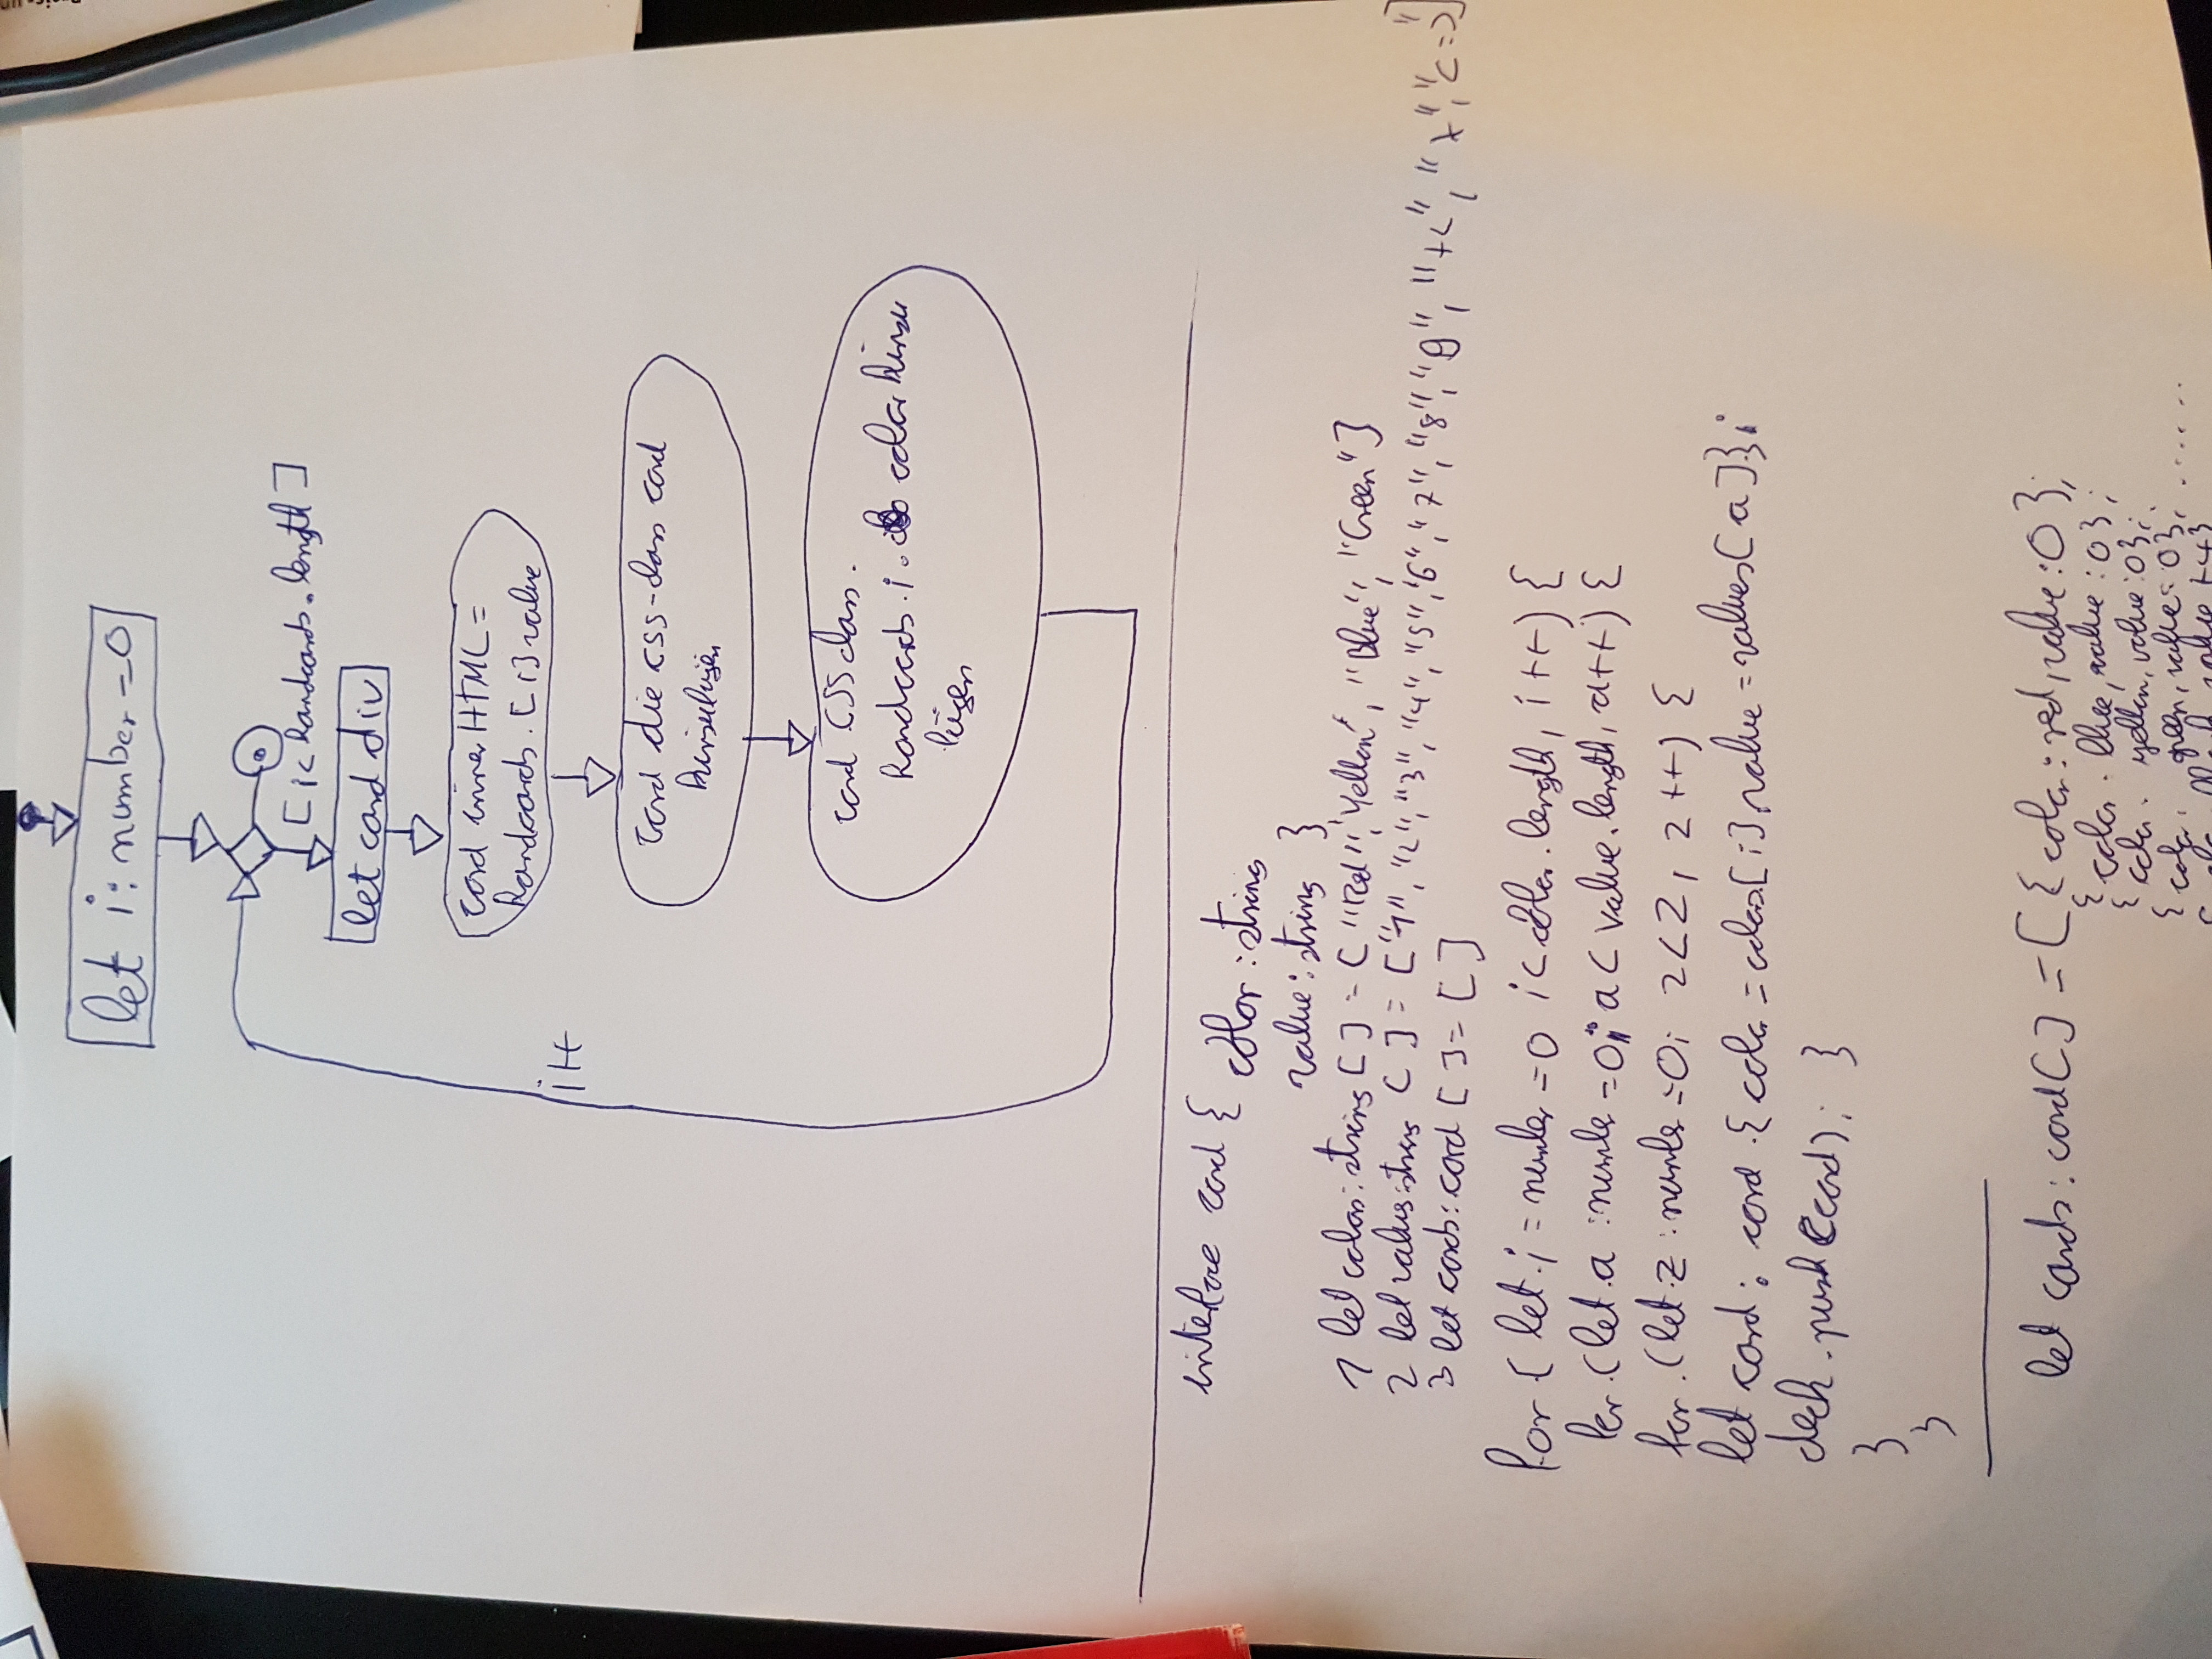 let i: number = 0
[i < Handcards.length]
let card div
card innerHTML =
Handcards. [i] value
i++
card die CSS-class card
hinzufügen
card CSS class.
Handcards.i. color hinzu
fügen
interface card {
color : string
value : string }
1 let colors : string [ ] = ["Red", "Yellow", "Blue", "Green"]
2 let values : string [ ] = ["1", "2", "3", "4", "5", "6", "7", "8", "9",
3 let cards : card [ ] = [ ]
for ( let i = number = 0 i < color.length, i++) {
for. (let a : number = 0; a < value.length, a++) {
for. (let z : number = 0; z < 2, z++) {
let card : card {color = colors[i], value = values[a]};
deck.push(card); }
}
}
let cards : card[] = [{color : red, value : 0};
{color . blue, value : 0};
{color . yellow, value : 0};
{color . green, value : 0}; ......
value +4}